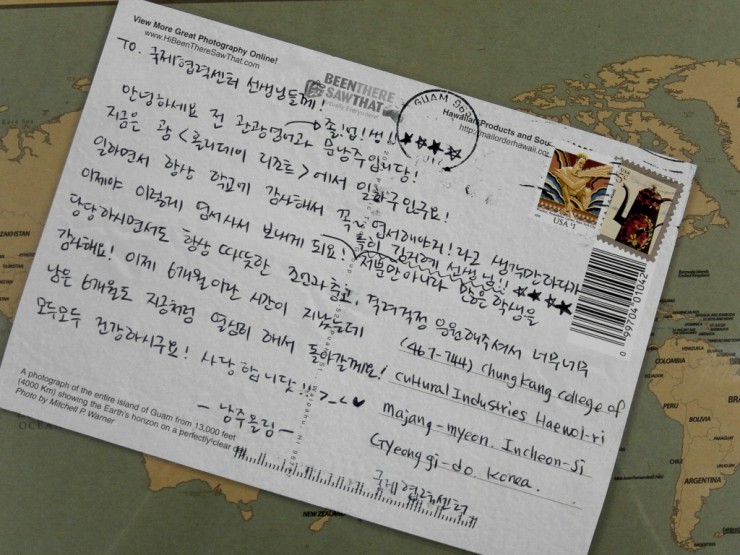 View More Great Photography Online!
www.HiBeenThereSawThat.com
TO. 국제협력센터 선생님들께!
BEENTHERE
SAWTHAT
GUAM
Hawaiian Products and Sou
http://mailorderhawaii.co
USA $1
안녕하세요 전 관광영어과 졸!업!생!! 문낭주입니당!
지금은 괌 <홀리데이 리조트>에서 일하구있구요!
일하면서 항상 학교가 감사해서 꼭~ 엽서해야지!라고 생각만하다가
이제야 이렇게 엽서사서 보내게 되요! 특히 김지예 선생님!!
당당하시면서도 항상 따뜻한 조언과 충고, 격려 저뿐만아니라 많은 학생을
감사해요! 이제 6개월이란 시간이 지났는데 걱정 응원해주셔서 너무너무
남은 6개월도 지금처럼 열심히 해서 돌아갈께요!
모두모두 건강하시구요! 사랑합니닷!!
- 낭주올림 -
(467-744) Chungkang college of
cultural Industries Haewol-ri
majang-myeon. Incheon-si
Gyeonggi-do. Korea.
국제협력센터
A photograph of the entire island of Guam from 13,000 feet
(4000 Km) showing the Earth's horizon on a perfectly clear
Photo by Mitchell P Warner
0 99704 01042
COLOMBIA
PERU
BOLIVIA
ARGENTINA
NEW ZEALAND